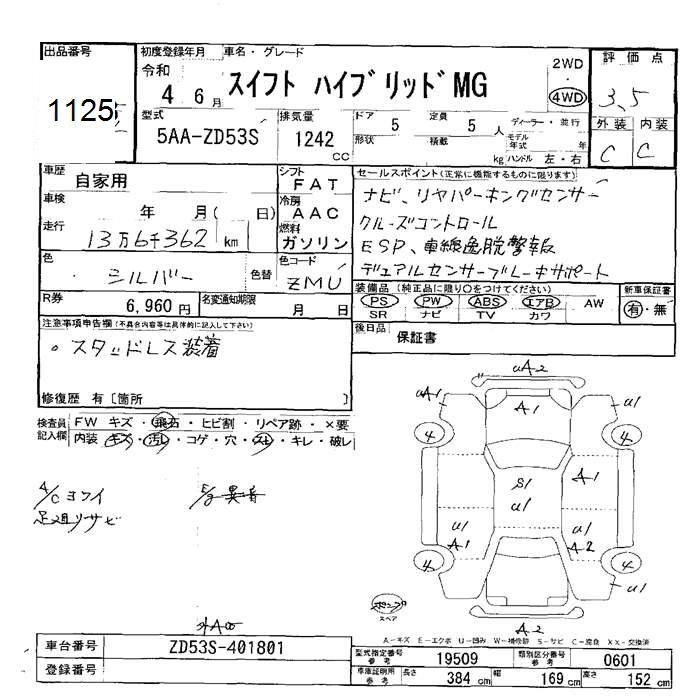 出品番号 初度登録年月 車名・グレード 2WD 評価点
1125 令和 4 6月 スイフト ハイブリッドMG 4WD 3、5
型式 5AA-ZD53S 排気量 1242 cc ドア 5 定員 5 人 ディーラー・並行 外装 内装
形状 積載 kg モデル年式 年 ハンドル 左・右 C C
車歴 自家用 シフト FAT セールスポイント(正常に機能するものに限ります)
車検 年 月( 日) 冷房 AAC ナビ、リヤパーキングセンサー
走行 13万6千362 km 燃料 ガソリン クルーズコントロール
ESP、車線逸脱警報
色 シルバー 色替 色コード ZMU デュアルセンサーブレーキサポート
装備品 (純正品に限り○をつけてください) 新車保証書
R券 6,960円 名変通知期限 月 日 PS PW ABS エアB AW 有・無
SR ナビ TV カワ
注意事項申告欄(不具合内容等は具体的に記入して下さい) 後日品 保証書
・スタッドレス装着
修復歴 有〔箇所 〕
検査員記入欄 FW キズ・飛石・ヒビ割・リペア跡・×要
内装 キズ・汚レ・コゲ・穴・スレ・キレ・破レ
uA2
uA1 A1 u1
4 4
S1 A1
u1
u1 u1
A1 A2
4 4
u1
A2
A/C ヨワイ E/g 異音
足廻リサビ
ポンプ
スペア
A-キズ E-エクボ U-凹み W-補修跡 S-サビ C-腐食 X,X-交換済
車台番号 ZD53S-401801
登録番号
型式指定番号 参考 19509 類別区分番号 参考 0601
車庫証明用 参考 長さ 384 cm 幅 169 cm 高さ 152 cm